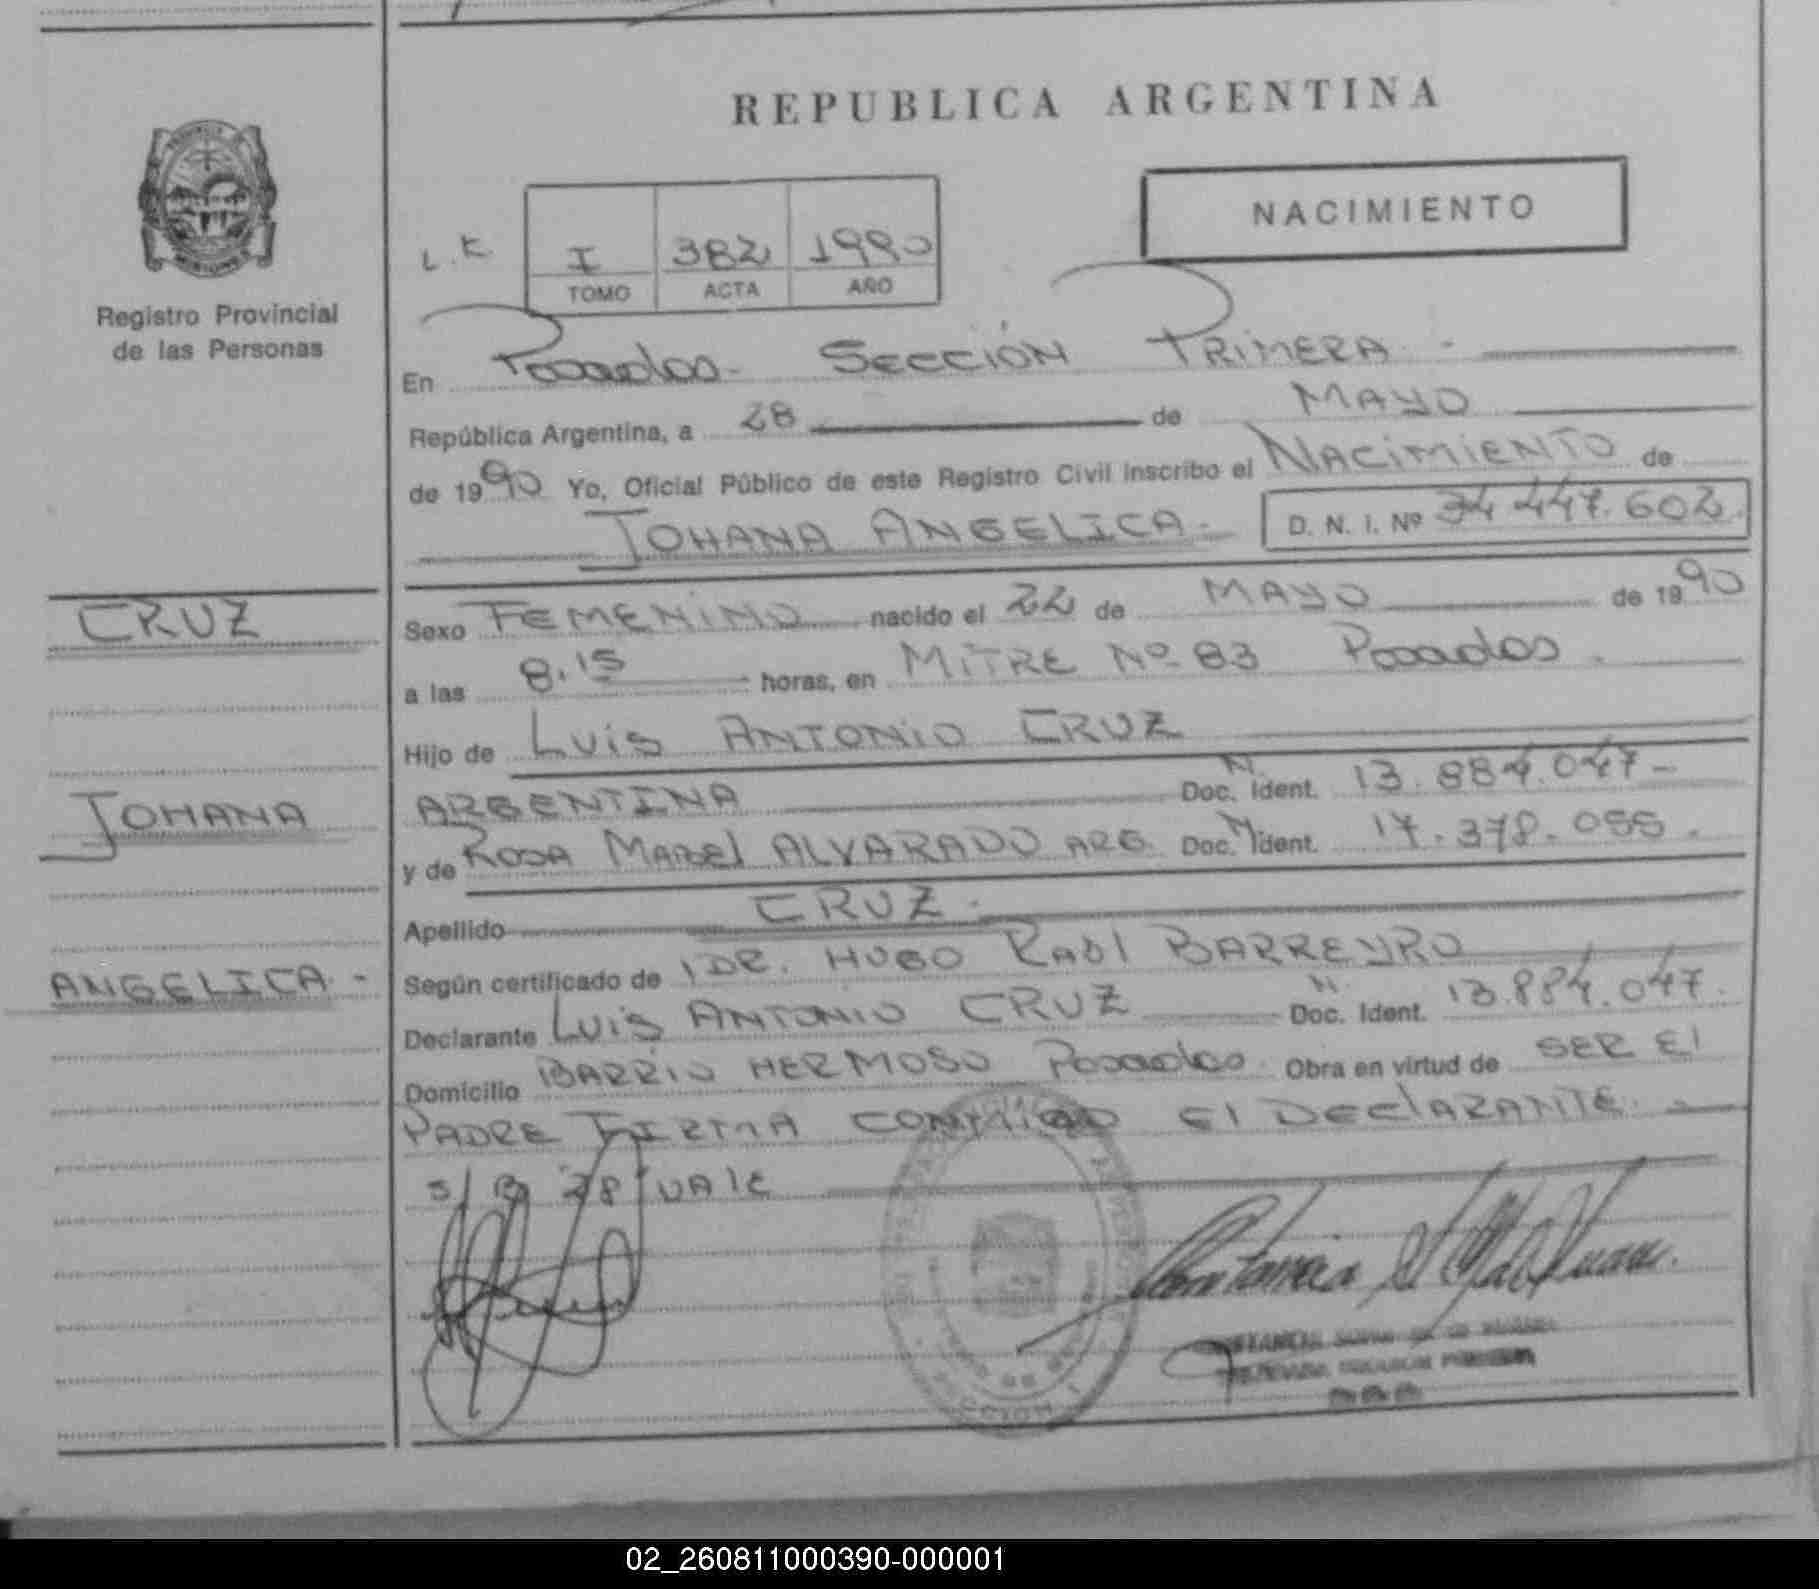 REPUBLICA ARGENTINA
NACIMIENTO
L.K.
I 382 1990
TOMO ACTA AÑO
Registro Provincial
de las Personas
En Posadas- SECCIÓN PRIMERA.-
República Argentina, a 28 de MAYO
de 1990 Yo, Oficial Público de este Registro Civil inscribo el NACIMIENTO de
JOHANA ANGELICA.- D. N. I. Nº 34.447.602.
CRUZ
JOHANA
ANGELICA.-
Sexo FEMENINO nacido el 22 de MAYO de 1990
a las 8.15 horas, en MITRE Nº 83 Posadas.
Hijo de LUIS ANTONIO CRUZ
ARGENTINA Doc. N. Ident. 13.884.047-
y de ROSA MABEl ALVARADO ARG. Doc. N. Ident. 17.378.055.
Apellido CRUZ.
Según certificado de DR. HUGO RAUl BARREYRO
Declarante LUIS ANTONIO CRUZ Doc. N. Ident. 13.884.047.
Domicilio BARRIO HERMOSO Posadas. Obra en virtud de SER El
PADRE FIRMA CONMIGO El DEClARANTE.-
S/B 28 VAlE
SECCION